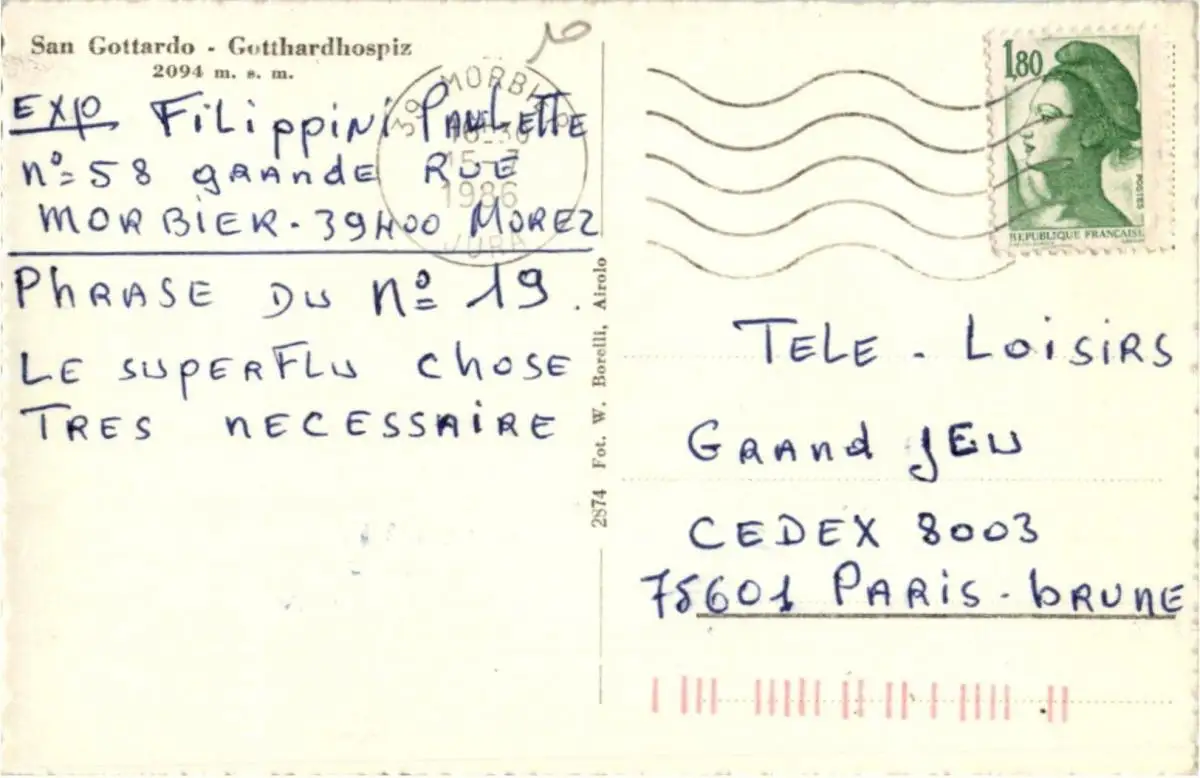 San Gottardo - Gotthardhospiz
2094 m. s. m.
EXP Filippini Paulette
n°=58 grande Rue
MORBIER. 39400 MOREZ
PhRASE DU n° 19.
LE supERFLU chOSE
TRES NECESSAIRE
39 MORBIER
15-7
1986
JURA
2874 Fot. W. Borelli, Airolo
1,80
POSTES
REPUBLIQUE FRANÇAISE
TELE - LoisiRS
GRAnd JEU
CEDEX 8003
75601 PARiS - bRUNE